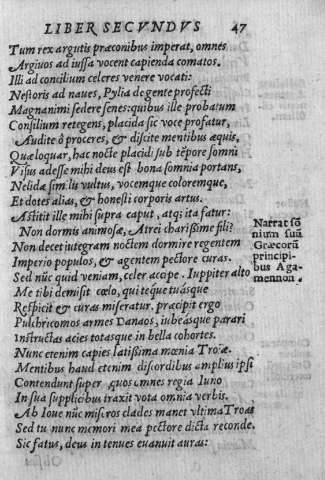 LIBER SECVNDVS 47
Tum rex argutis præconibus imperat, omnes
Argiuos ad iussa vocent capienda comatos.
Illi ad concilium celeres venere vocati:
Nestoris ad naues, Pylia de gente profecti
Magnanimi sedere senes: quibus ille probatum
Consilium retegens, placida sic voce profatur,
Audite ô proceres, & discite mentibus æquis,
Quæ loquar, hac nocte placidi sub tẽpore somni
Visus adesse mihi deus est bona somnia portans,
Nelidæ similis vultus, vocemque coloremque,
Et dotes alias, & honesti corporis artus.
Astitit ille mihi supra caput, atqȝ ita fatur:
Non dormis animosæ, Atrei charissime fili?
Non decet integram noctem dormire regentem
Imperio populos, & agentem pectore curas.
Sed nũc quid veniam, celer accipe. Iuppiter alto
Me tibi demisit cœlo, qui teque tuásque
Respicit & curas miseratur. præcipit ergo
Pulchricomos armes Danaos, iubeásque parari
Instructas acies totasque in bella cohortes.
Nunc etenim capies latissima mœnia Troiæ.
Mentibus haud etenim discordibus amplius ipsi
Contendunt super, quos omnes regia Iuno
In sua supplicibus traxit vota omnia verbis.
Ab Ioue nũc miseros clades manet vltima Troas
Sed tu nunc memori mea pectore dicta reconde.
Sic fatus, deus in tenues euanuit auras:
Narrat sõ
nium suũ
Græcorũ
principi-
bus Aga-
memnon.